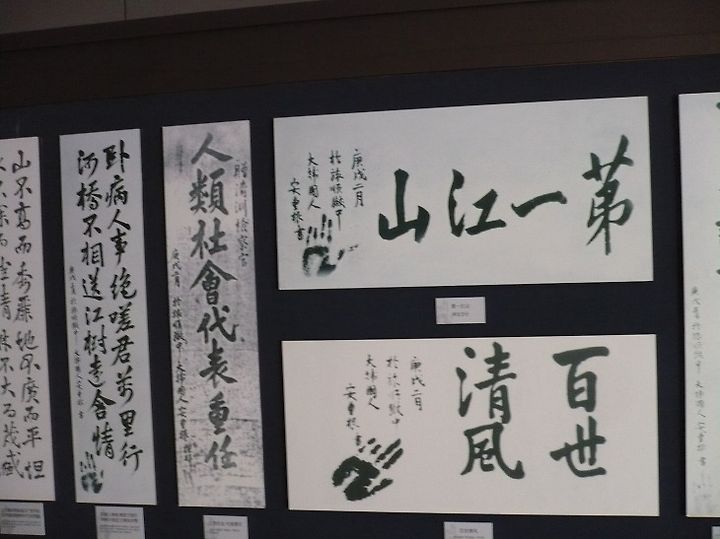 第一江山
庚戌二月
於旅順獄中
大韓國人
安重根 書
百世
清風
庚戌二月
於旅順獄中
大韓國人
安重根 書
人類社會代表重任
庚戌二月 於旅順獄中 大韓國人 安重根 謹拜
卧病人事絶嗟君萬里行
河橋不相送江樹遠含情
於旅順獄中 大韓國人 安重根 書
山不高而秀麗地不廣而平坦
水不深而清林不大而茂盛